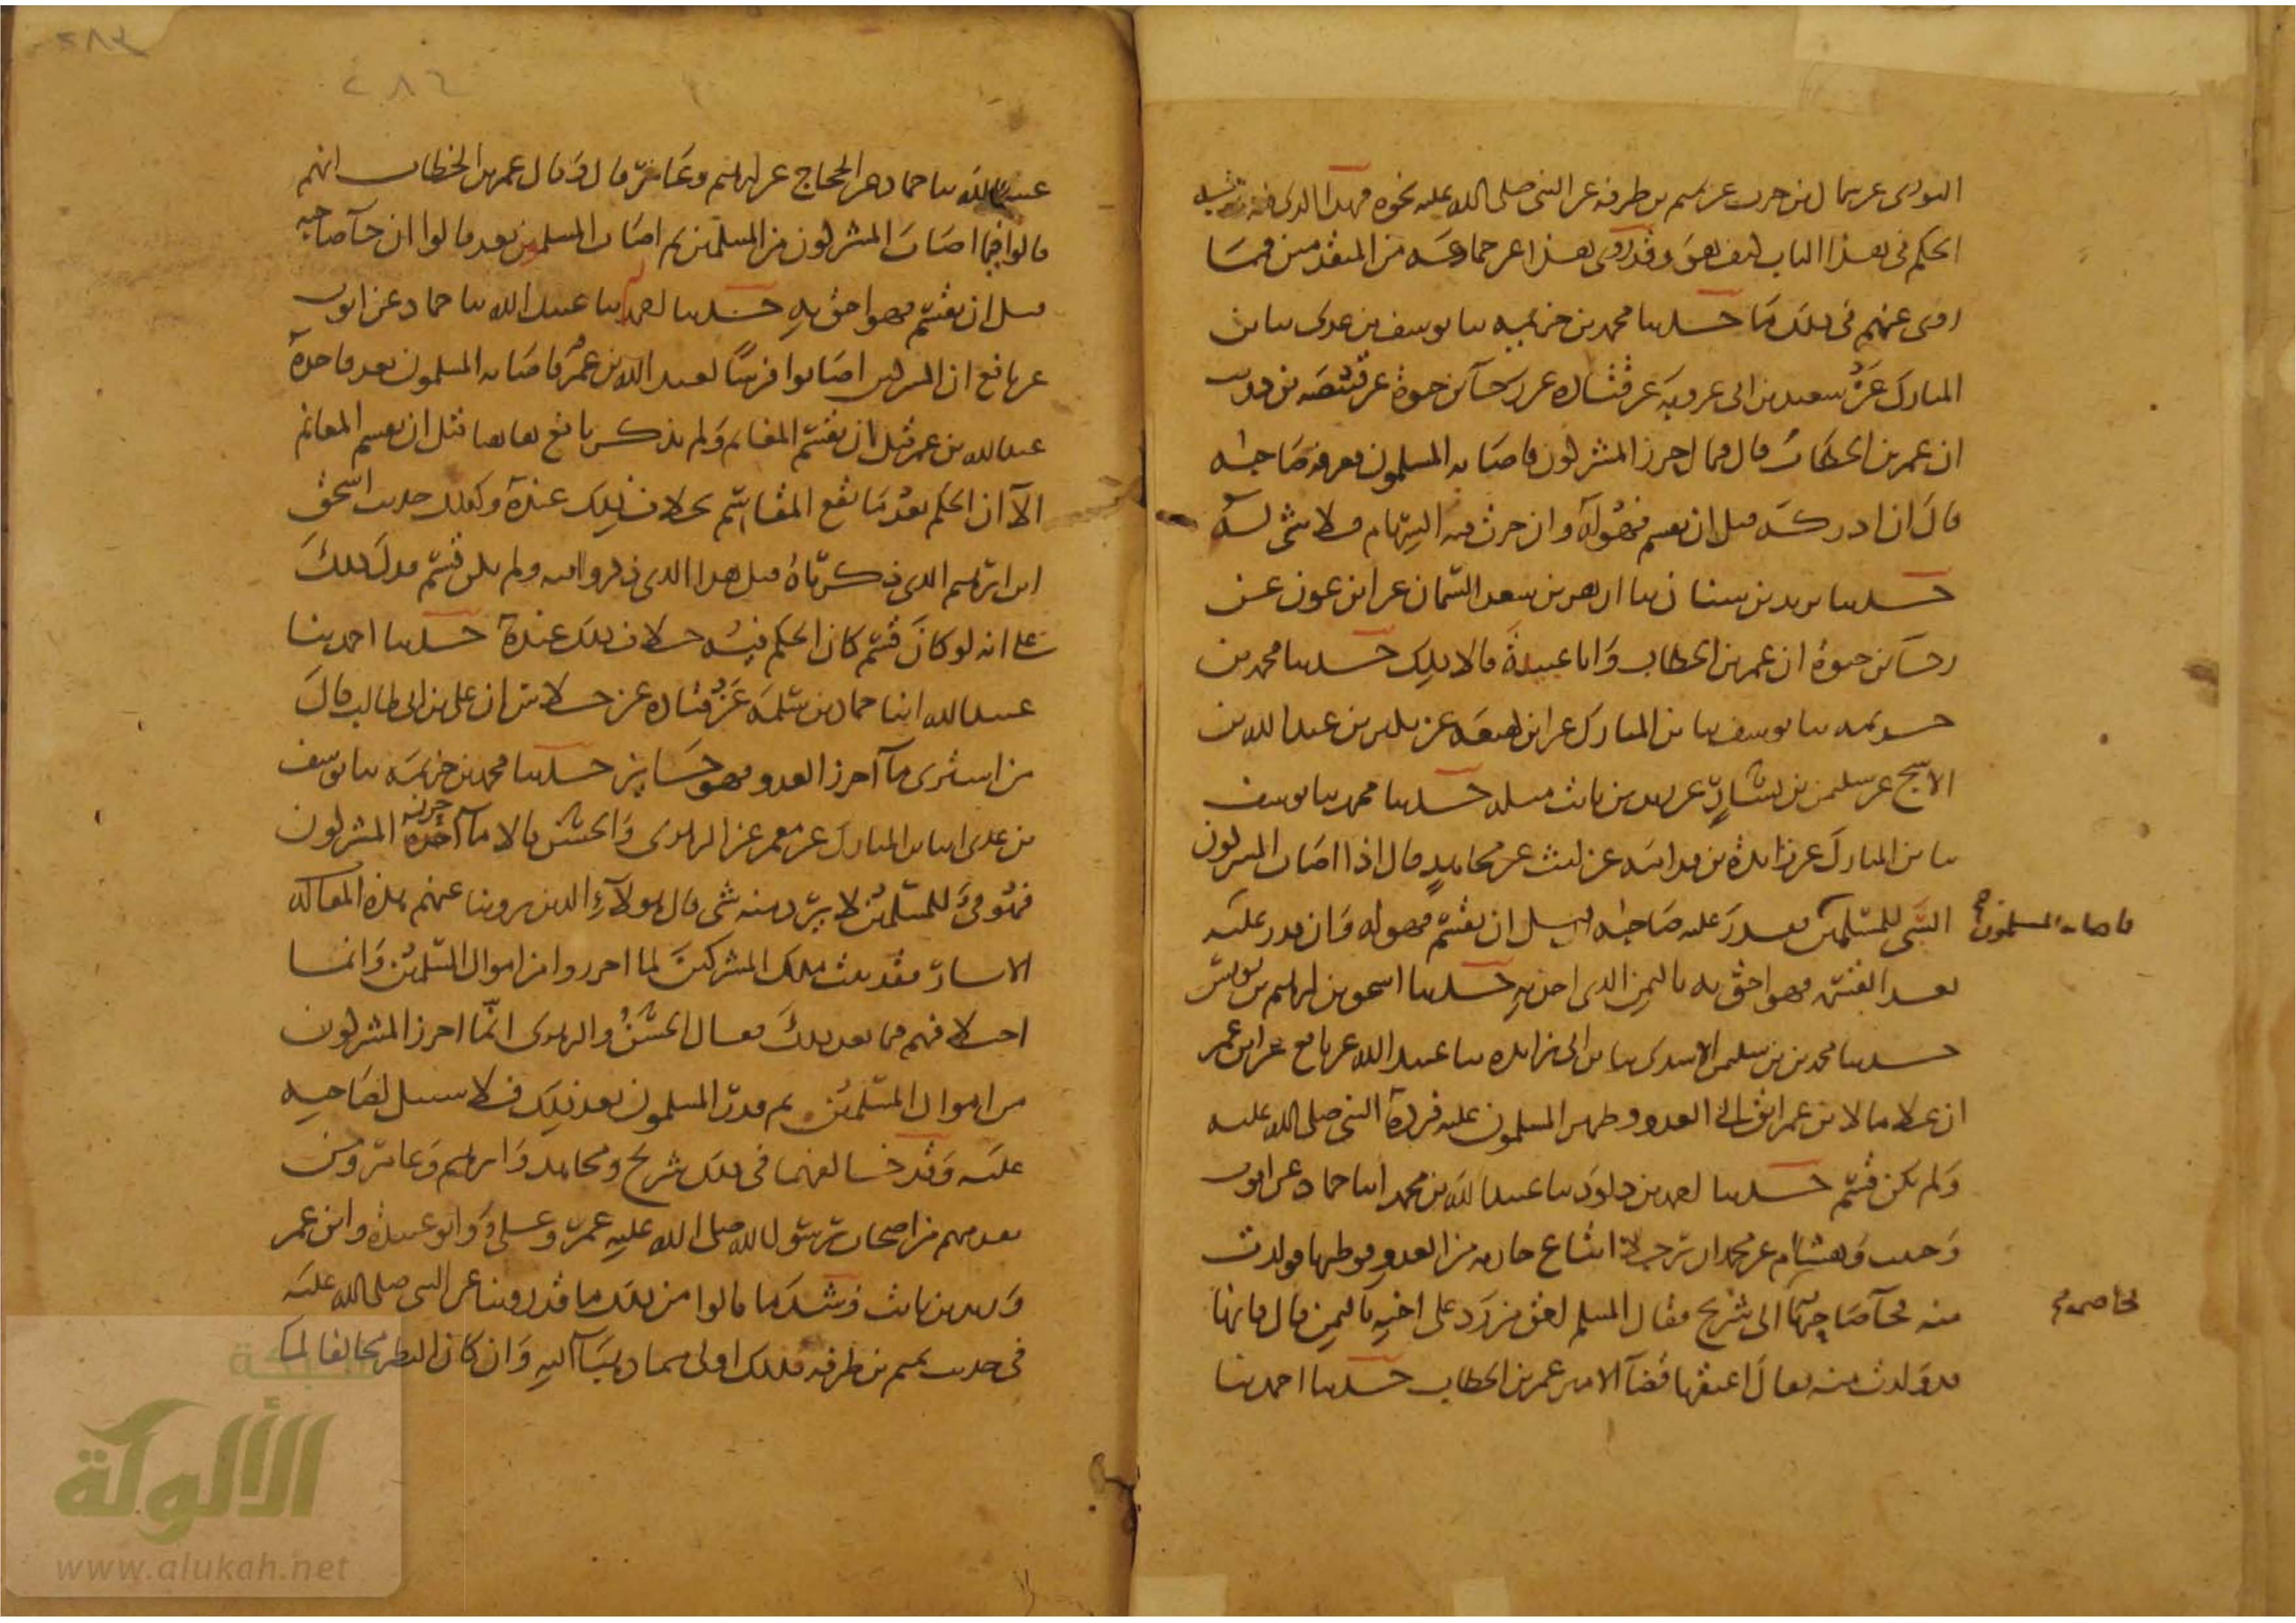 الثوري عن سماك بن حرب عن تميم بن طرفة عن النبي صلى الله عليه نحوه فهذا الذي فيه
الحكم في هذا الباب كيف هو وقد روي هذا عن جماعة من المتقدمين فمما
روي عنهم في ذلك ما حدثنا محمد بن خزيمة ثنا يوسف بن عدي ثنا بن
المبارك عن سعيد بن ابي عروبة عن قتادة عن رجآ بن حيوة عن قبيصة بن ذويب
ان عمر بن الخطاب قال فيما احرز المشركون فاصابه المسلمون فعرفه صاحبه
قال ان ادركه قبل ان يقسم فهو له وان جرت فيه السهام فلا شي له
حدثنا يزيد بن سنان ثنا ازهر بن سعد السمان عن ابن عون عن
رجآ بن حيوة ان عمر بن الخطاب وابا عبيدة قالا ذلك حدثنا محمد بن
خزيمة ثنا يوسف ثنا بن المبارك عن ابن لهيعة عن بكير بن عبد الله بن
الاشج عن سليمن بن يسار عن زيد بن ثابت مثله حدثنا محمد ثنا يوسف
ثنا بن المبارك عن زائدة بن قدامة عن ليث عن مجاهد قال اذا اصاب المشركون
الشي للمسلمين فقدر عليه صاحبه قبل ان يقسم فهو له وان قدر عليه
فاصابه المسلمون صح
بعد القسمة فهو احق به بالثمن الذي اخذ به حدثنا اسحق بن ابراهيم بن يونس
حدثنا محمد بن سليمن الاسدي ثنا بن ابي زائدة ثنا عبيد الله عن نافع عن ابن عمر
ان غلاما لابن عمر ابق الى العدو وظهر المسلمون عليه فرده النبي صلى الله عليه
ولم يكن قسم حدثنا احمد بن داود ثنا عبيد الله بن محمد انبا حماد عن ايوب
وحبيب وهشام عن محمد ان رجلا ابتاع جارية من العدو فوطيها فولدت
منه فجآ صاحبها الى شريح فقال المسلم احق من رد على اخيه بالثمن قال فانها
فخاصمه
قد ولدت منه فقال اعتقها قضآ الامير عمر بن الخطاب حدثنا احمد ثنا
٢٨٣
٢٨٤
عبيد الله ثنا حماد عن الحجاج عن ابراهيم وعامر قال وقال عمر بن الخطاب انهم
قالوا فيما اصاب المشركون من المسلمين ثم اصاب المسلمون بعد قالوا ان جآ صاحبه
قبل ان يقسم فهو احق به حدثنا احمد ثنا عبيد الله ثنا حماد عن ايوب
عن نافع ان المشركين اصابوا فرسا لعبد الله بن عمر فاصابه المسلمون بعد فاخذه
عبد الله بن عمر قبل ان يقسم المغانم ولم يذكر نافع هاهنا قبل ان يقسم المغانم
الا ان الحكم بعد ما تقع المقاسم بخلاف ذلك عنده وكذلك حديث اسحق
ابن ابراهيم الذي ذكرناه قبل هذا الذي ذكروا فيه ولم يكن قسم فدل ذلك
على انه لو كان قسم كان الحكم فيه خلاف ذلك عنده حدثنا احمد ثنا
عبيد الله انبا حماد بن سلمة عن قتادة عن خلاس ان علي بن ابي طالب قال
من اشترى مآ احرز العدو فهو جايز حدثنا محمد بن خزيمة ثنا يوسف
بن عدي انبا بن المبارك عن معمر عن الزهري والحسن قالا مآ احرزه المشركون
فهو فيء للمسلمين لا يرد منه شي قال هولآء الذين روينا عنهم هذه المقالة
الاسار فقد يثبت ملك المشركين لما احرزوا من اموال المسلمين وانما
اختلافهم فيما بعد ذلك فقال الحسن والزهري انما احرز المشركون
من اموال المسلمين ثم قدر المسلمون بعد ذلك فلا سبيل لصاحبه
عليه وقد خالفهما في ذلك شريح ومجاهد وابراهيم وعامر ومن
تقدمهم من اصحاب رسول الله صلى الله عليه عمر وعلي وابو عبيدة وابن عمر
وزيد بن ثابت وشد ما قالوا من ذلك ما قد روينا عن النبي صلى الله عليه
في حديث تميم بن طرفة فذلك اولى مما ذهبنا اليه وان كان النظر مخالفا لما
شبكة
الألوكة
www.alukah.net